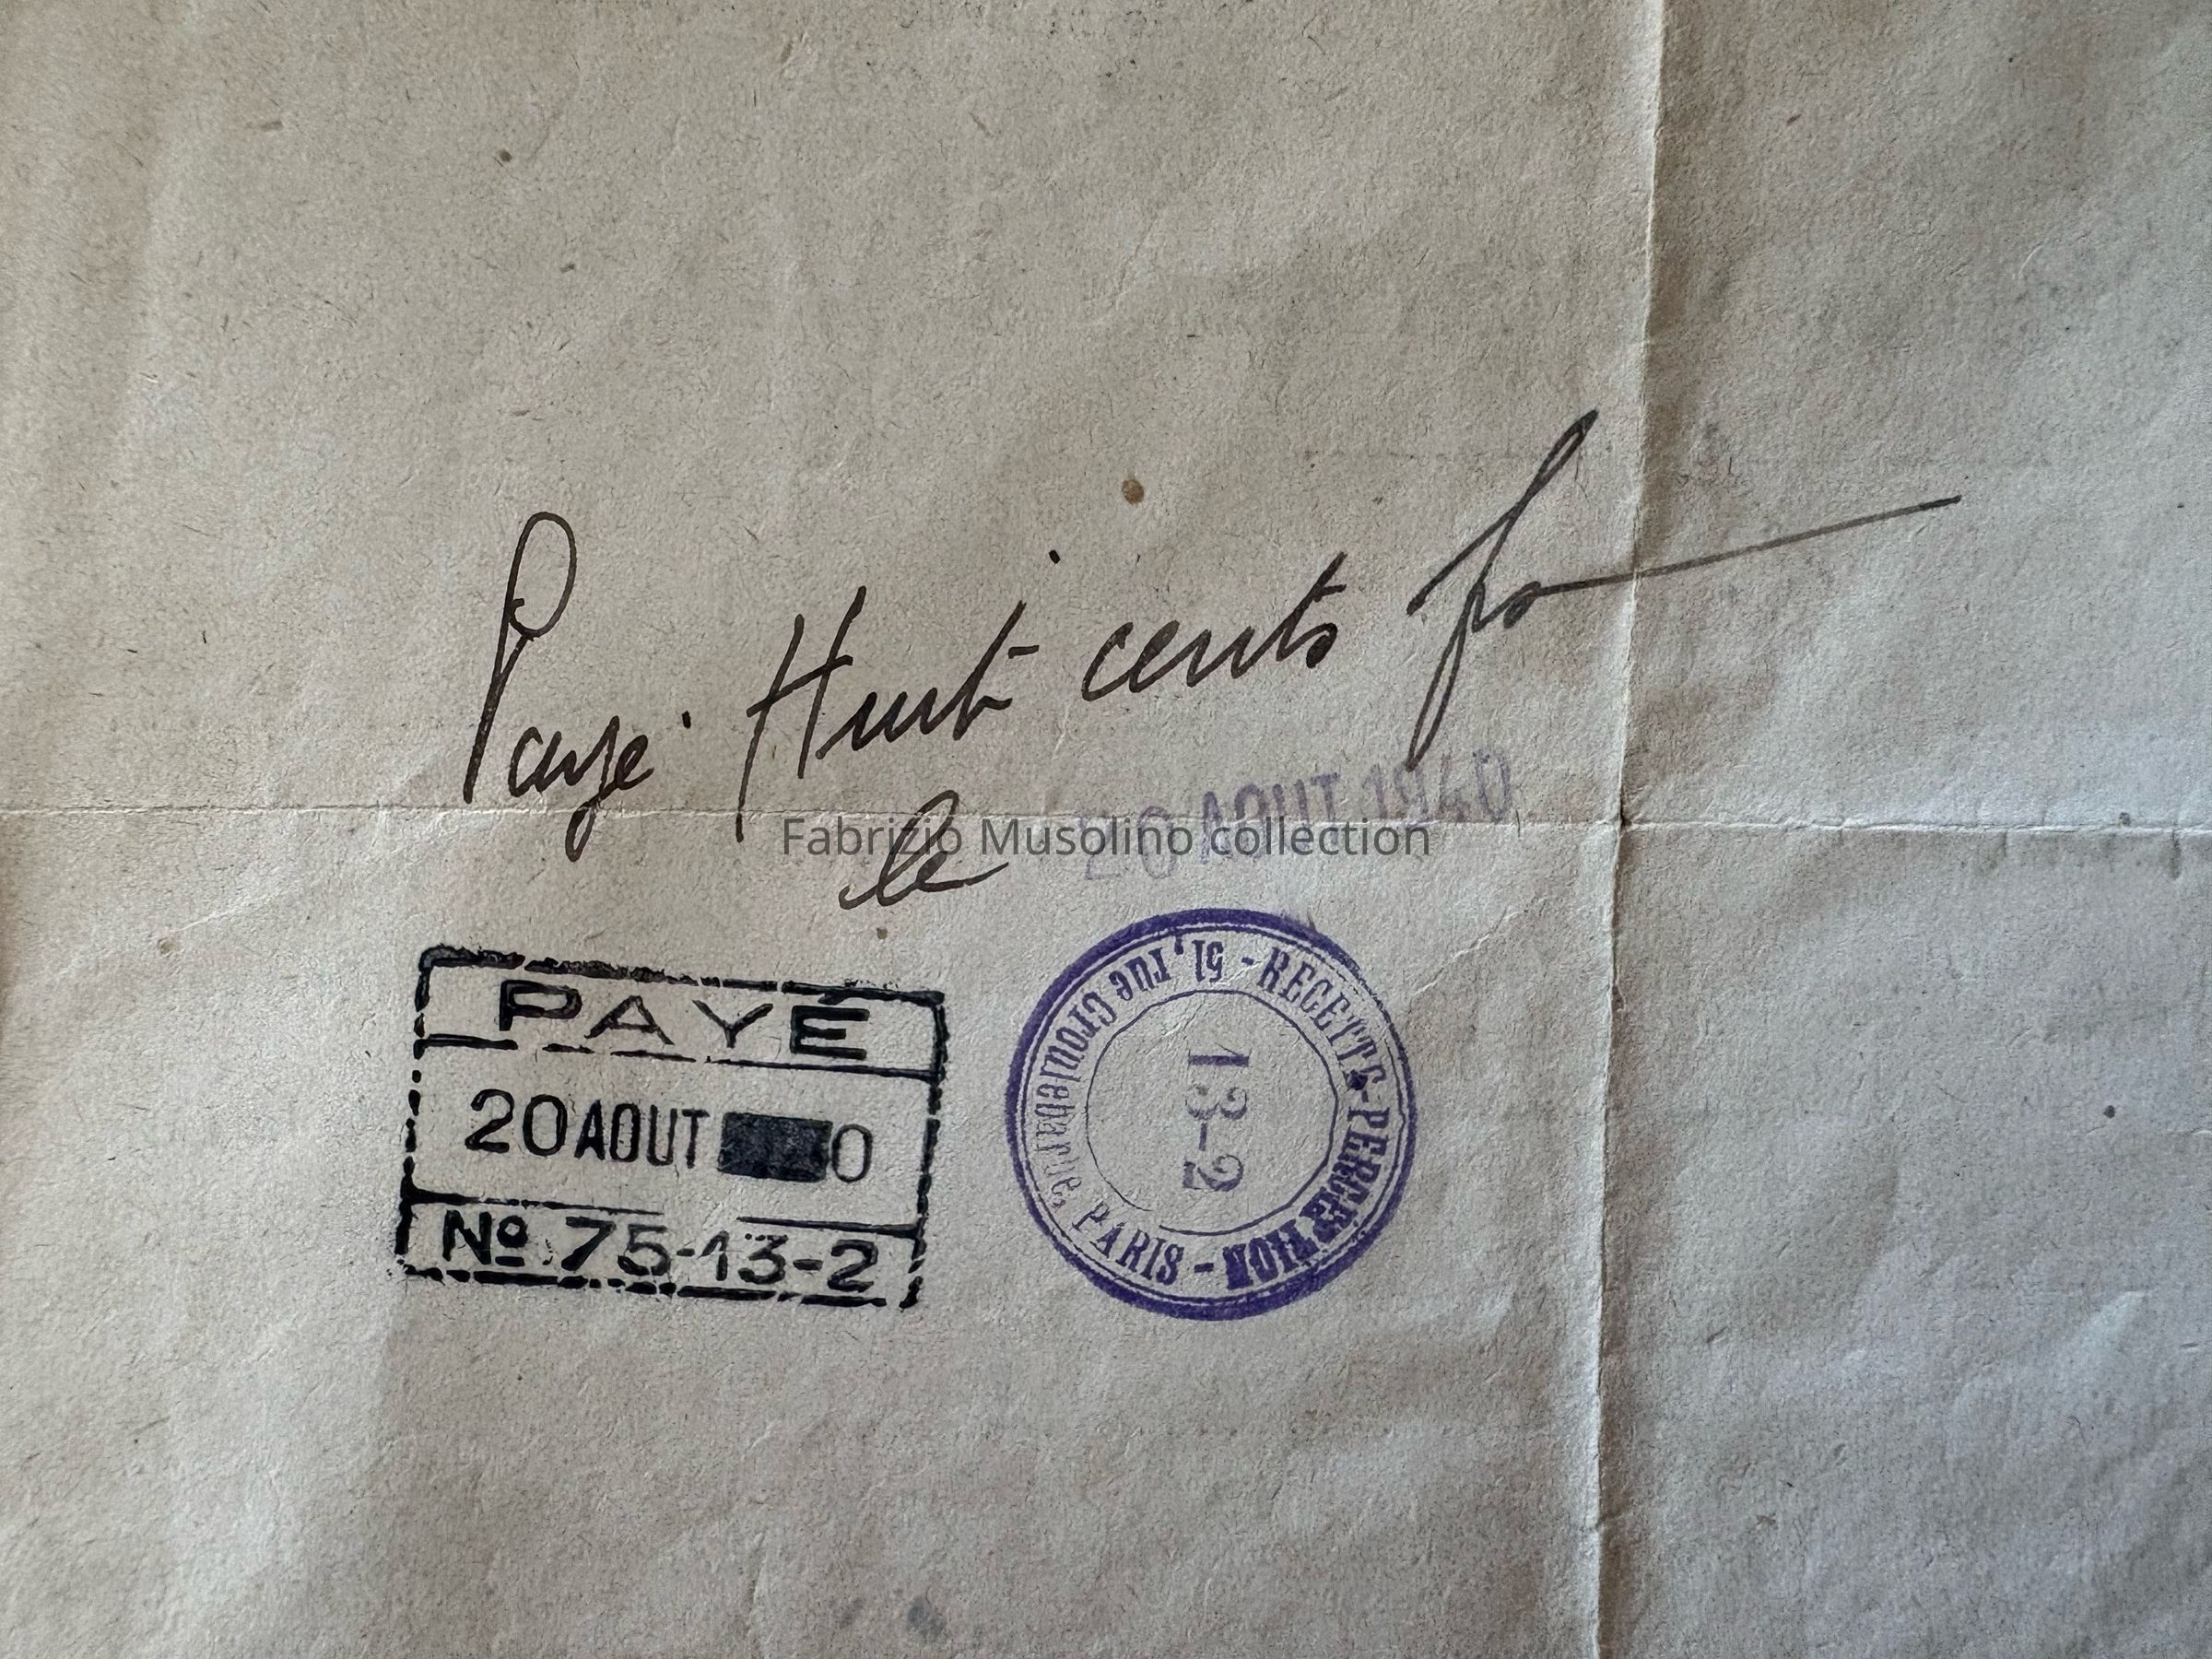 Payé Huit cents fs
le 20 AOUT 1940
Fabrizio Musolino collection
PAYÉ
20 AOUT 0
No 75-13-2
RECETTE-PERCEPTION - 51, rue Croulebarbe, PARIS -
13-2